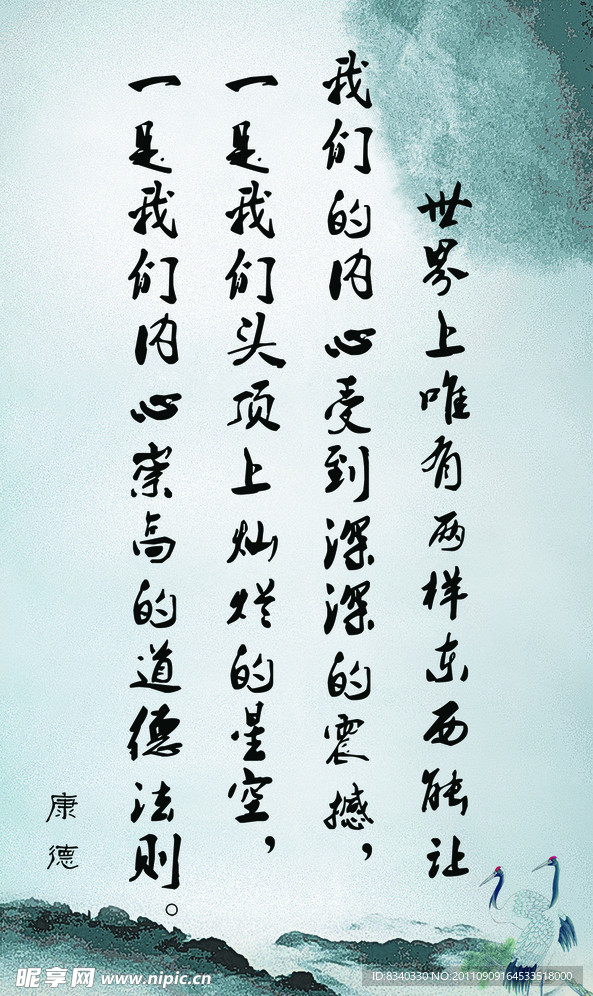 世界上唯有两样东西能让
我们的内心受到深深的震撼，
一是我们头顶上灿烂的星空，
一是我们内心崇高的道德法则。
康德
昵享网 www.nipic.cn
ID:8340330 NO.20110909164533518000